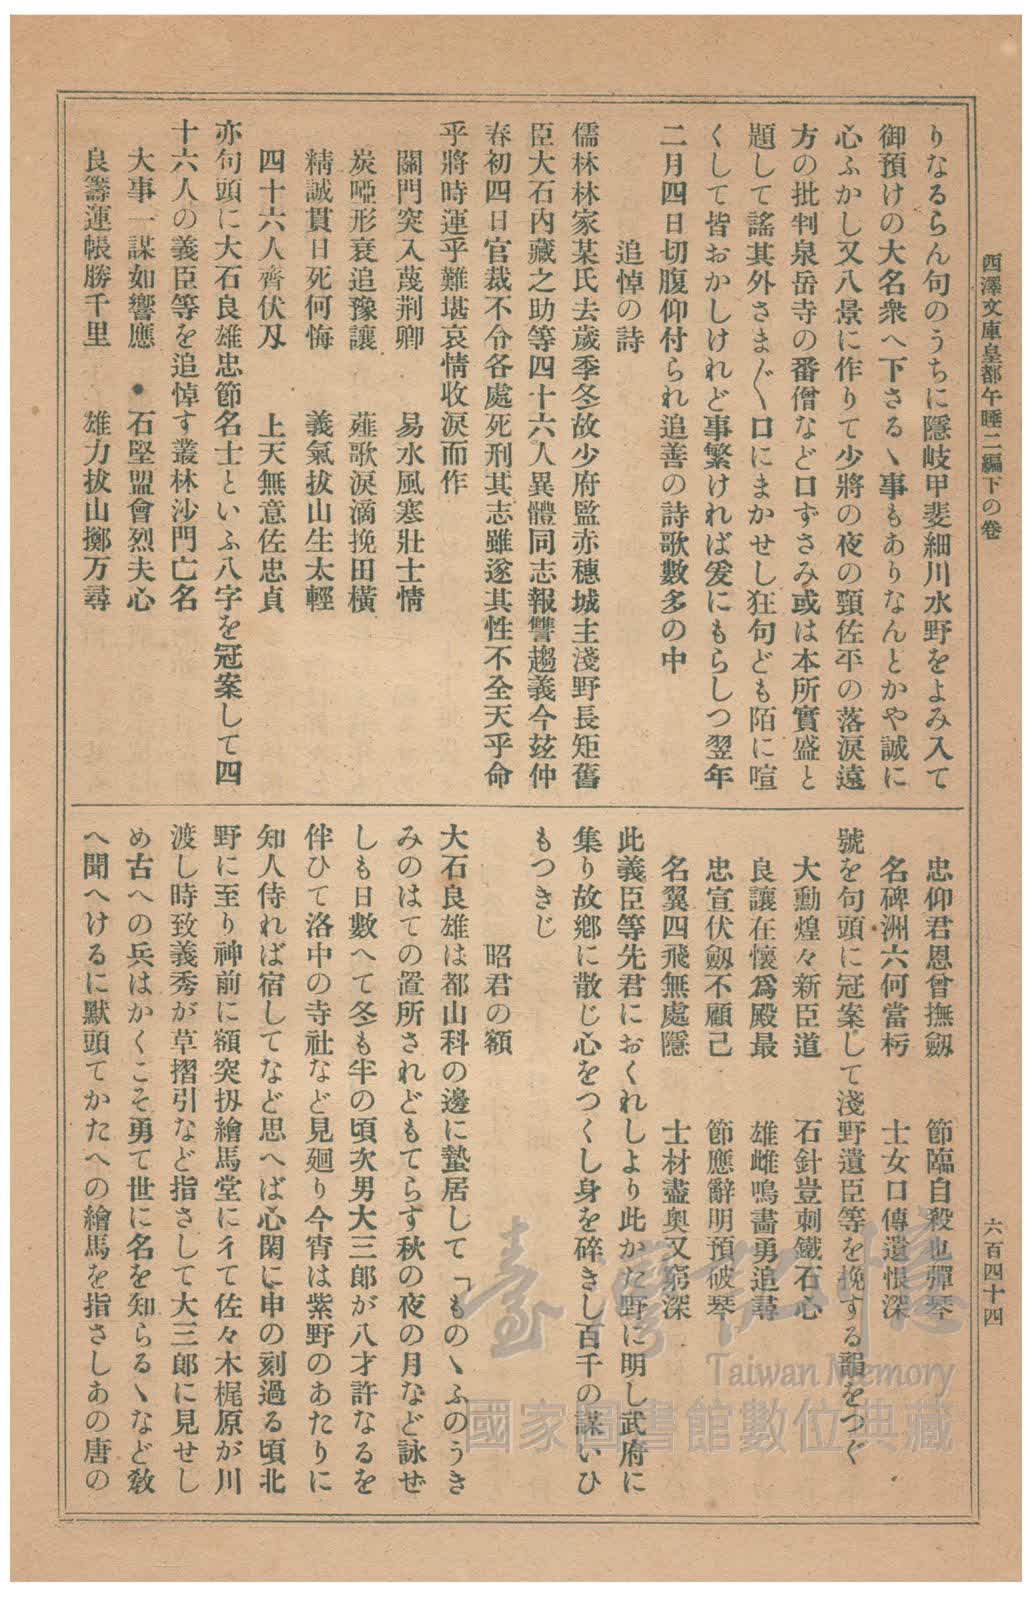 西澤文庫皇都午睡二編下の卷
六百四十四
りなるらん句のうちに隱岐甲斐細川水野をよみ入て
御預けの大名衆へ下さるゝ事もありなんとかや誠に
心ふかし又八景に作りて少將の夜の頸佐平の落淚遠
方の批判泉岳寺の番僧など口ずさみ或は本所實盛と
題して謠其外さま〴〵口にまかせし狂句ども陌に喧
くして皆おかしけれど事繁ければ爰にもらしつ翌年
二月四日切腹仰付られ追善の詩歌數多の中
追悼の詩
儒林林家某氏去歲季冬故少府監赤穗城主淺野長矩舊
臣大石內藏之助等四十六人異體同志報讐趨義今玆仲
春初四日官裁不令各處死刑其志雖遂其性不全天乎命
乎將時運乎難堪哀情收淚而作
關門突入蔑荆卿　易水風寒壯士情
炭啞形衰追豫讓　薤歌淚滴挽田橫
精誠貫日死何悔　義氣拔山生太輕
四十六人齊伏刄　上天無意佐忠貞
亦句頭に大石良雄忠節名士といふ八字を冠案して四
十六人の義臣等を追悼す叢林沙門亡名
大事一謀如響應　石堅盟會烈夫心
良籌運帳勝千里　雄力拔山擲万尋
忠仰君恩曾撫劔　節臨自殺也彈琴
名碑洲六何當朽　士女口傳遺恨深
號を句頭に冠案して淺野遺臣等を挽する韻をつぐ
大勳煌々新臣道　石針豈刺鐵石心
良讓在懷爲殿最　雄雌鳴晝勇追尋
忠宣伏劔不顧己　節應辭明預破琴
名翼四飛無處隱　士材盡奥又窮深
此義臣等先君におくれしより此かた野に明し武府に
集り故鄕に散じ心をつくし身を碎きし百千の謀いひ
もつきじ
昭君の額
大石良雄は都山科の邊に蟄居して「ものゝふのうき
みのはての置所されどもてらす秋の夜の月など詠ぜ
しも日數へて冬も半の頃次男大三郎が八才許なるを
伴ひて洛中の寺社など見廻り今宵は紫野のあたりに
知人侍れば宿してなど思へば心閑に申の刻過る頃北
野に至り神前に額突扨繪馬堂に彳て佐々木梶原が川
渡し時致義秀が草摺引など指さして大三郎に見せし
め古への兵はかくこそ勇て世に名を知らるゝなど敎
へ聞へけるに默頭てかたへの繪馬を指さしあの唐の
臺灣記憶
Taiwan Memory
國家圖書館數位典藏